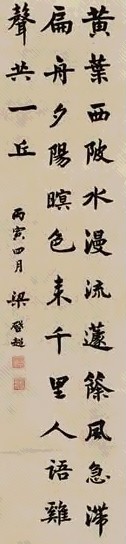 黃葉西陂水漫流籧篨風急滯
扁舟夕陽暝色来千里人語雞
聲共一丘
丙寅四月 梁啓超